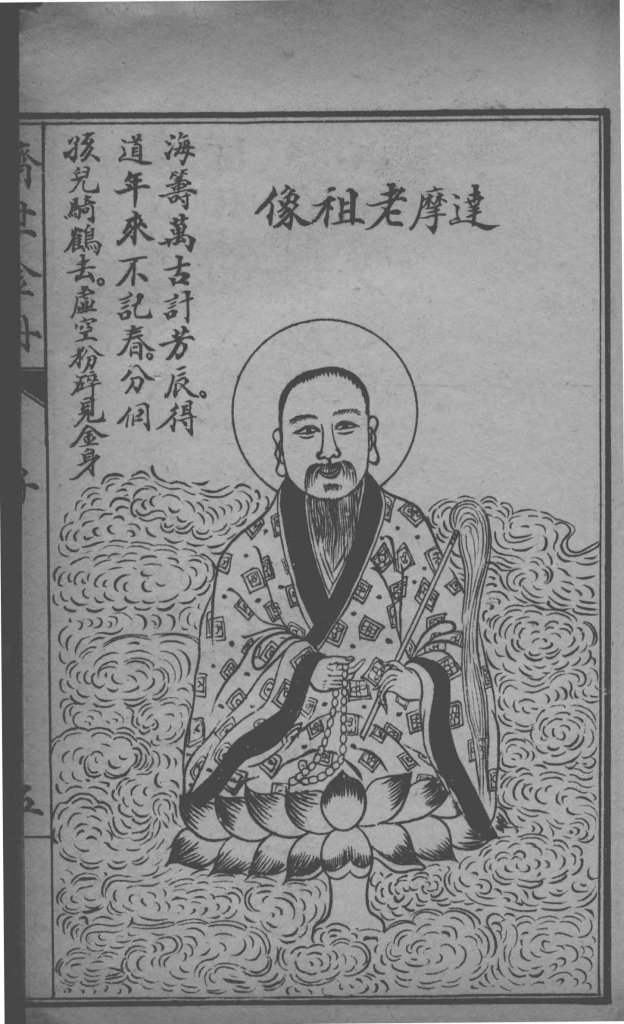 達摩老祖像
海籌萬古計芳辰。得
道年來不記春。分個
孩兒騎鶴去。虛空粉碎見金身
濟世金丹
子
五